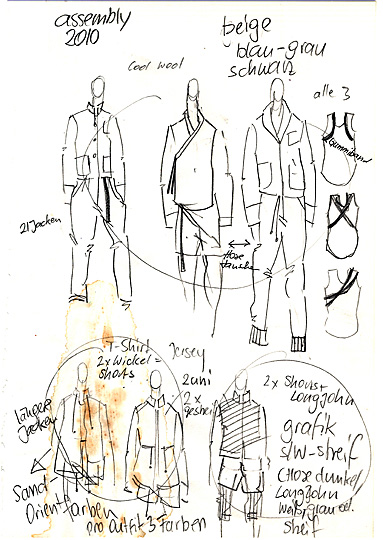 assembly
2010
beige
blau-grau
schwarz
Cool wool
alle 3
Gummiband
21 Jacken
Hose
tauschen
T-Shirt
2x Wickel =
shorts
Jersey
2 uni
2x
längere
Jacken
2x shorts+
Longjohn
grafik
s/w-streif
(Hose dunkel
Longjohn
weiß/grau
streif
Samt
Orientfarben
pro Outfit 3 Farben